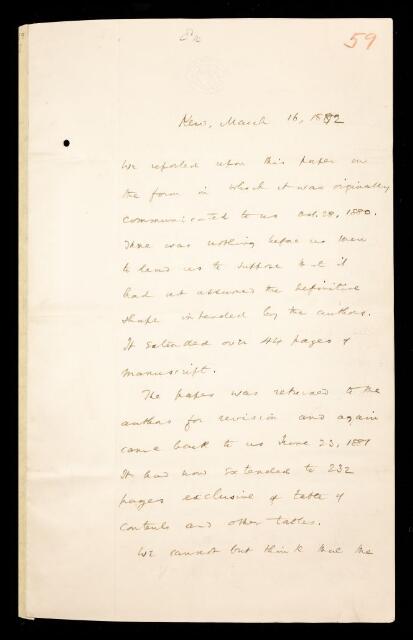 59
Kew, March 16, 1882
We reported upon this paper in
the form in which it was originally
communicated to us Oct. 28, 1880.
There was nothing before us then
to lead us to suppose that it
had not assumed the definitive
shape intended by the authors.
It extended over 44 pages of
manuscript.
The paper was returned to the
authors for revision and again
came back to us June 23, 1881
It had now extended to 232
pages exclusive of table of
contents and other tables.
We cannot but think that the